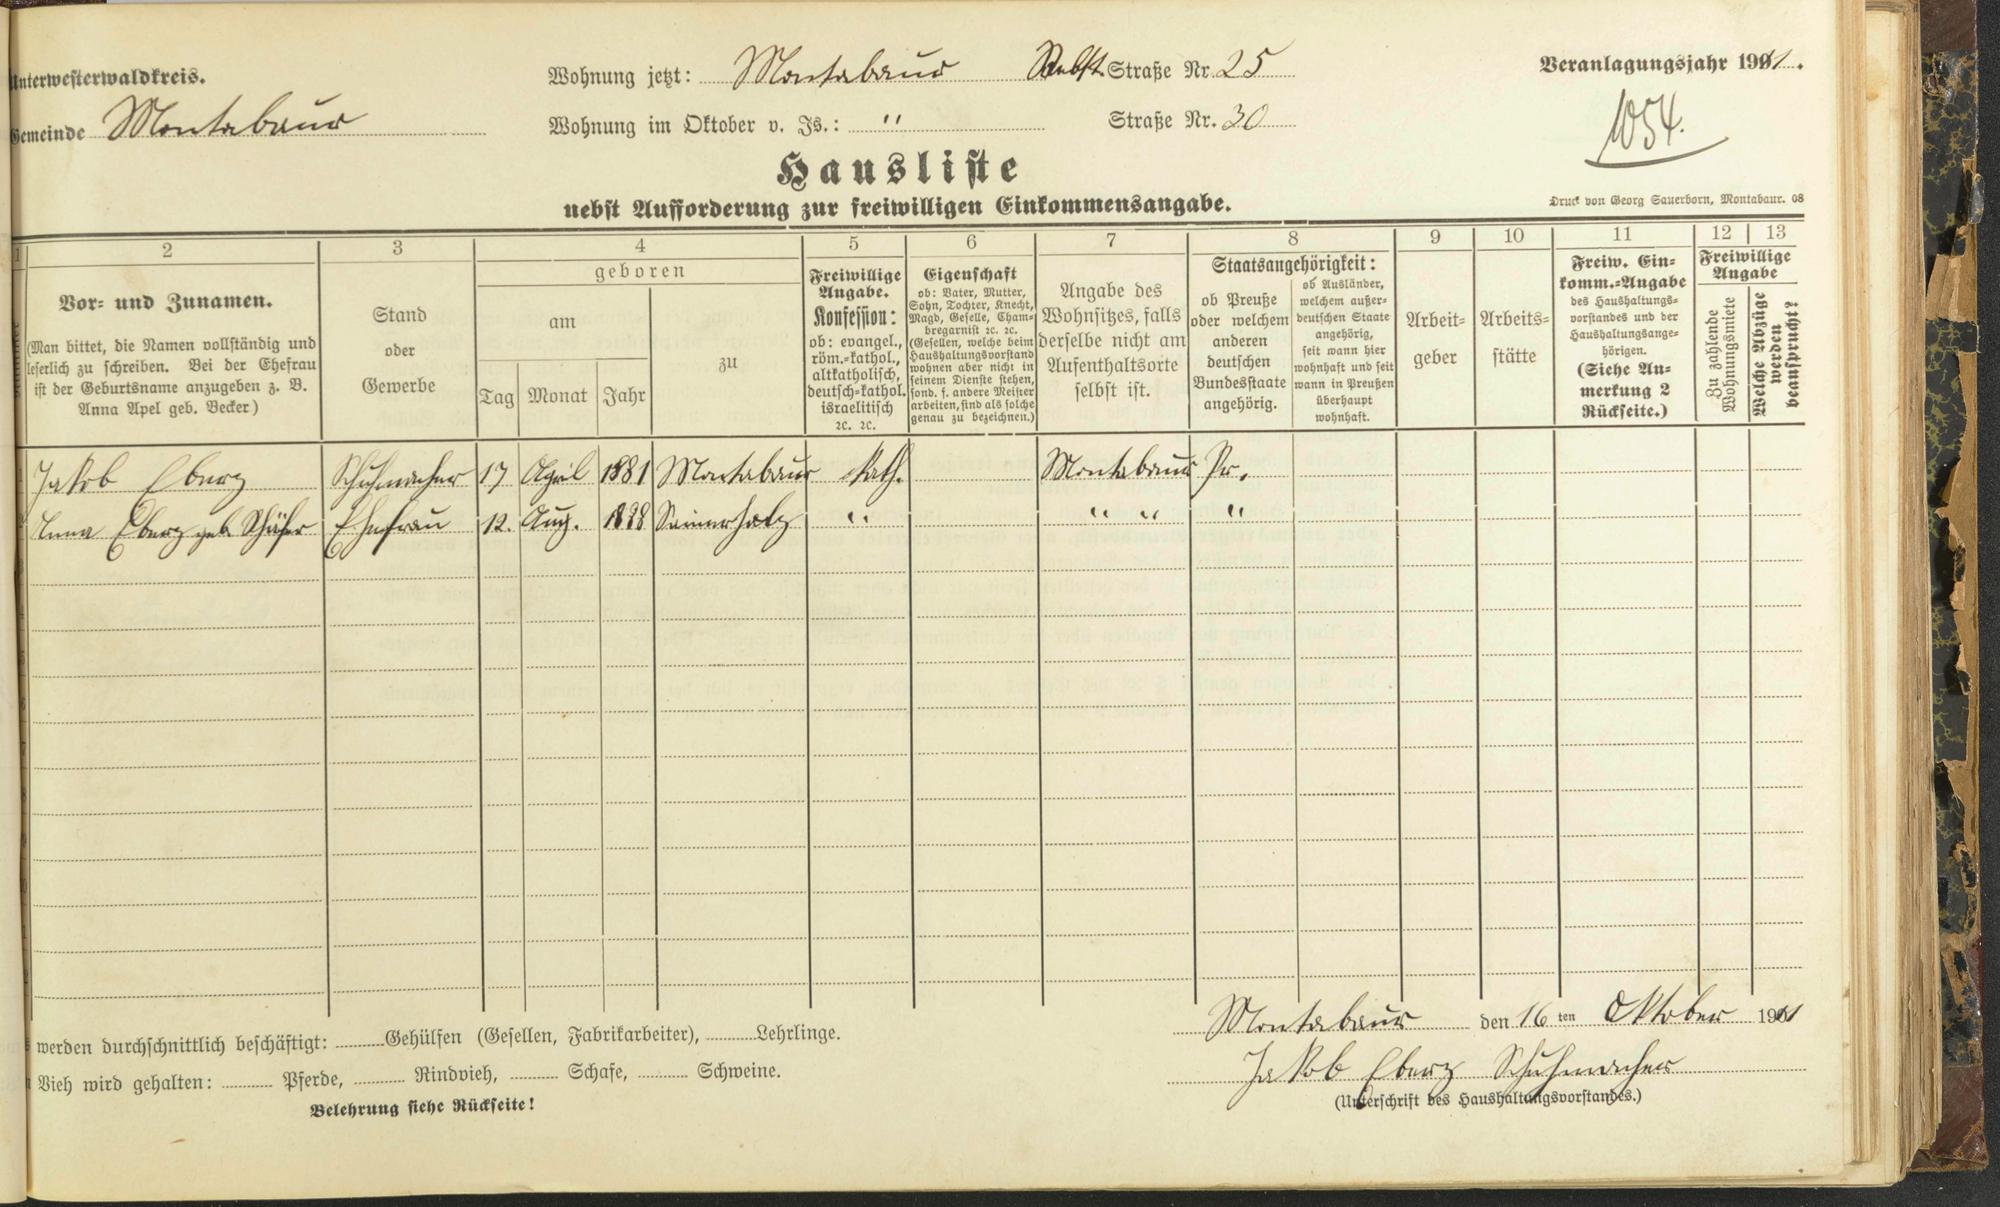 Unterwesterwaldkreis.
Gemeinde Montabaur
Wohnung jetzt: Montabaur Rebst. Straße Nr. 25
Wohnung im Oktober v. Js.: " Straße Nr. 30
Veranlagungsjahr 1911.
1054.
Hausliste
nebst Aufforderung zur freiwilligen Einkommensangabe.
Druck von Georg Sauerborn, Montabaur. 08
1 2 3 4 5 6 7 8 9 10 11 12 13
Vor- und Zunamen.
(Man bittet, die Namen vollständig und
leserlich zu schreiben. Bei der Ehefrau
ist der Geburtsname anzugeben z. B.
Anna Apel geb. Becker)
Stand
oder
Gewerbe
geboren
am
zu
Tag Monat Jahr
Freiwillige
Angabe.
Konfession:
ob: evangel.,
röm.-kathol.,
altkatholisch,
deutsch-kathol.
israelitisch
ꝛc. ꝛc.
Eigenschaft
ob: Vater, Mutter,
Sohn, Tochter, Knecht,
Magd, Geselle, Cham-
bregarnist ꝛc. ꝛc.
(Gesellen, welche beim
Haushaltungsvorstand
wohnen aber nicht in
seinem Dienste stehen,
sond. f. andere Meister
arbeiten, sind als solche
genau zu bezeichnen.)
Angabe des
Wohnsitzes, falls
derselbe nicht am
Aufenthaltsorte
selbst ist.
Staatsangehörigkeit:
ob Preuße
oder welchem
anderen
deutschen
Bundesstaate
angehörig.
ob Ausländer,
welchem außer-
deutschen Staate
angehörig,
seit wann hier
wohnhaft und seit
wann in Preußen
überhaupt
wohnhaft.
Arbeit-
geber
Arbeits-
stätte
Freiw. Ein-
komm.-Angabe
des Haushaltungs-
vorstandes und der
Haushaltungsange-
hörigen.
(Siehe An-
merkung 2
Rückseite.)
Freiwillige
Angabe
Zu zahlende
Wohnungsmiete
Welche Abzüge
werden
beansprucht?
Jakob Eberz Schuhmacher 17 April 1881 Montabaur Kath. Montabaur Pr.
Anna Eberz geb. Schäfer Ehefrau 12. Aug. 1888 " " " "
werden durchschnittlich beschäftigt: Gehülfen (Gesellen, Fabrikarbeiter), Lehrlinge.
Vieh wird gehalten: Pferde, Rindvieh, Schafe, Schweine.
Belehrung siehe Rückseite!
Montabaur den 16 ten Oktober 1911
Jakob Eberz Schuhmacher
(Unterschrift des Haushaltungsvorstandes.)